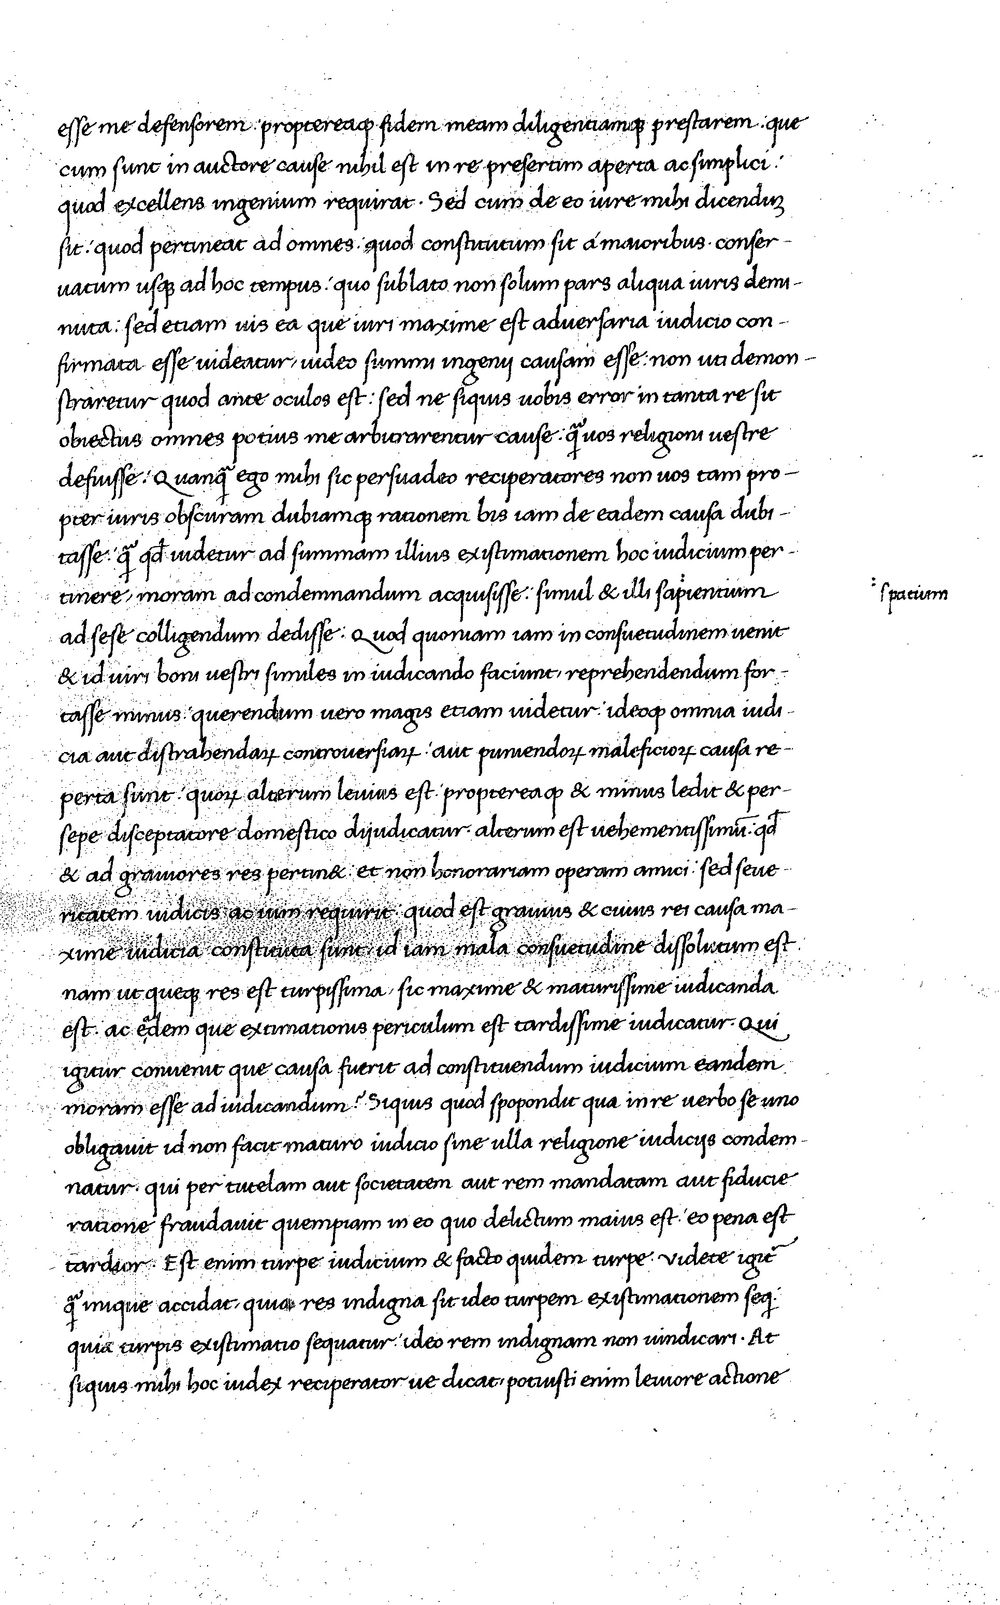 esse me defensorem: proptereaqꝫ fidem meam diligentiamqꝫ prestarem: que
cum sunt in auctore cause nihil est in re presertim aperta ac simplici:
quod excellens ingenium requirat. Sed cum de eo iure mihi dicenduꝫ
sit: quod pertineat ad omnes: quod constitutum sit á maioribus. conser-
uatum usqꝫ ad hoc tempus: quo sublato non solum pars aliqua iuris demi-
nuta: sed etiam uis ea que iuri maxime est aduersaria iudicio con-
firmata esse uideatur, uideo summi ingenij causam esse: non uti demon-
straretur quod ante oculos est: sed ne siquis uobis error in tanta re sit
obiectus omnes potius me arbitrarentur cause: q̃ uos religioni uestre
defuisse. Quanq̃ ego mihi sic persuadeo reciperatores non uos tam pro-
pter iuris obscuram dubiamqꝫ rationem bis iam de eadem causa dubi-
tasse: q̃ qđ uidetur ad summam illius existimationem hoc iudicium per-
tinere, moram ad condemnandum acquisisse: simul & illi sapientium
:spatium
ad sese colligendum dedisse. Quod quoniam iam in consuetudinem uenit
& id uiri boni uestri similes in iudicando faciunt, reprehendendum for-
tasse minus: querendum uero magis etiam uidetur: ideoqꝫ omnia iudi-
cia aut distrahendaꝝ controuersiaꝝ: aut puniendoꝝ maleficioꝝ causa re-
perta sunt: quoꝝ alterum leuius est: proptereaqꝫ & minus ledit & per-
sepe disceptatore domestico dijudicatur. alterum est uehementissimū: qđ
& ad grauiores res pertin&. et non honorariam operam amici: sed seue-
ritatem iudicis ac uim requirit: quod est grauius & cuius rei causa ma-
xime iudicia constituta sunt, id iam mala consuetudine dissolutum est.
nam ut queqꝫ res est turpissima, sic maxime & maturissime iudicanda
est. ac eadem que extimationis periculum est tardissime iudicatur. Qui
igitur conuenit que causa fuerit ad constituendum iudicium eandem
moram esse ad iudicandum? Siquis quod spopondit qua in re uerbo se uno
obligauit id non facit maturo iudicio sine ulla religione iudicijs condem-
natur. qui per tutelam aut societatem aut rem mandatam aut fiducie
ratione fraudauit quempiam in eo quo delictum maius est: eo pena est
tardior. Est enim turpe iudicium & facto quidem turpe. Videte igit̃
q̃ inique accidat, quia res indigna sit ideo turpem existimationem seq:
quia turpis existimatio sequatur: ideo rem indignam non uindicari. At
siquis mihi hoc iudex reciperator ue dicat, potuisti enim leuiore actione